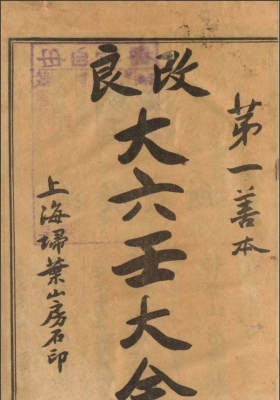 苐一善本
改良
大六壬大全
上海埽葉山房石印